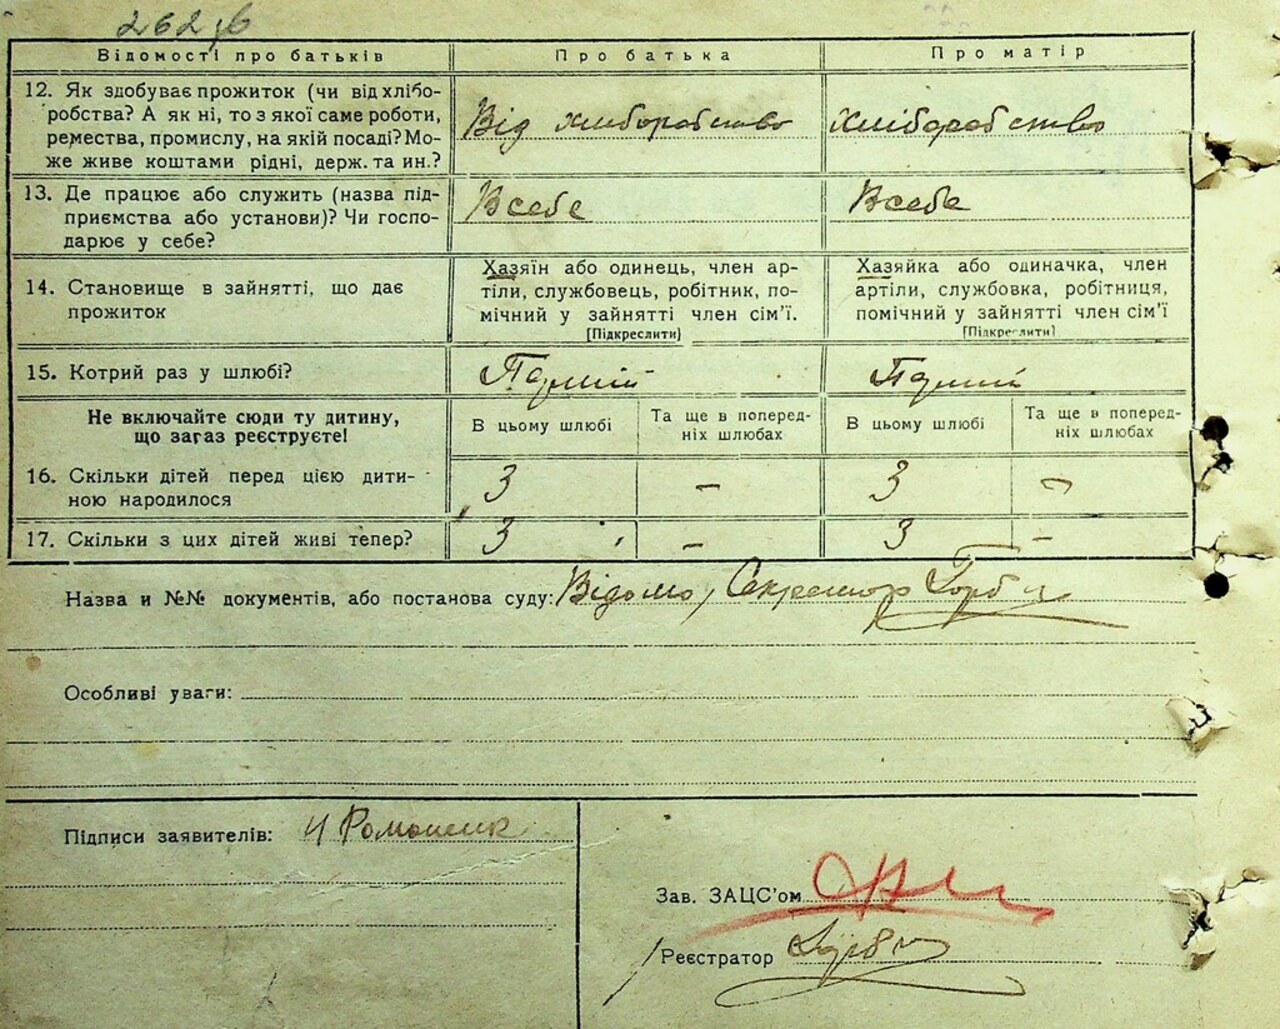 262зв
Відомості про батьків
Про батька
Про матір
12. Як здобуває прожиток (чи від хлібо-
робства? А як ні, то з якої саме роботи,
ремества, промислу, на якій посаді? Мо-
же живе коштами рідні, держ. та ин.?
Від хліборобство
Хліборобство
13. Де працює або служить (назва під-
приємства або установи)? Чи госпо-
дарює у себе?
В себе
В себе
14. Становище в зайнятті, що дає
прожиток
Хазяїн або одинець, член ар-
тілі, службовець, робітник, по-
мічний у зайнятті член сім'ї.
[Підкреслити]
Хазяйка або одиначка, член
артіли, службовка, робітниця,
помічний у зайнятті член сім'ї
[Підкреслити]
15. Котрий раз у шлюбі?
Не включайте сюди ту дитину,
що загаз реєструєте!
В цьому шлюбі
Та ще в поперед-
ніх шлюбах
В цьому шлюбі
Та ще в поперед-
ніх шлюбах
16. Скільки дітей перед цією дити-
ною народилося
3
–
3
–
17. Скільки з цих дітей живі тепер?
3
–
3
–
Назва и №№ документів, або постанова суду: Відомо, Секретар
Особливі уваги:
Підписи заявителів:
Зав. ЗАЦС'ом
Реєстратор